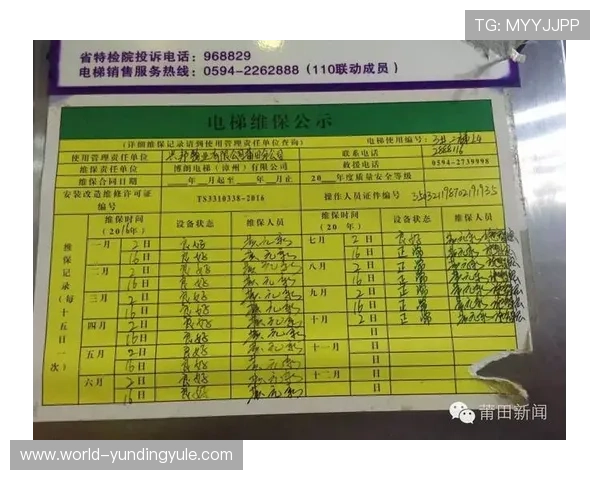 TG: MYYJJPP
省特检院投诉电话：968829
电梯销售服务热线：0594-2262888（110联动成员）
电梯维保公示
（详细维保记录请到使用管理责任单位查询）
电梯使用编号：
使用管理责任单位
联系电话
维保责任单位 博朗电梯（漳州）有限公司 救援电话 0594-2739998
维保合同日期 年 月起至 年 月止 20 年度质量安全等级
安装改造维修许可证编号 TS3310338-2016 操作人员证件编号
维保时间（2016年） 设备状态 维保人员 维保时间（20 年） 设备状态 维保人员
维保记录（每十五日一次）
一月 2日 良好 七月 2日 良好
16日 良好 16日 正常
二月 2日 良好 八月 2日 正常
16日 良好 16日 正常
三月 2日 良好 九月 2日 正常
16日 良好 16日 正常
四月 2日 良好 十月 2日 正常
16日 良好 日
五月 2日 良好 十一月 日
16日 良好 日
六月 2日 良好 十二月 日
16日 良好 日
莆田新闻
www.world-yundingyule.com